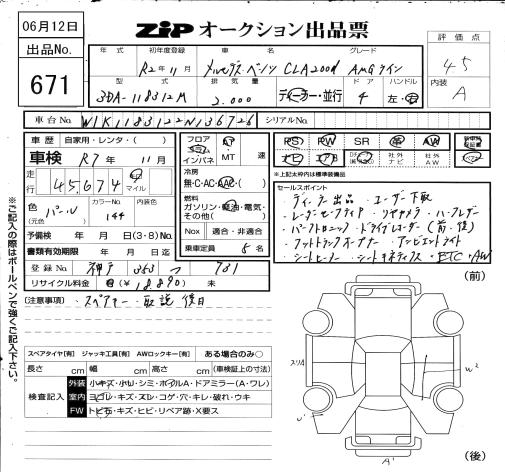 06月12日
ZiP オークション出品票
評価点
出品No.
671
年式 初年度登録 車名 グレード
R2年11月 メルセデス・ベンツ CLA200d AMGライン
4.5
内装
A
型式 排気量 ドア ハンドル
3DA-118312M 2.000 ディーラー・並行 4 左・右
車台No. W1K1183122N136726 シリアルNo.
車歴 自家用・レンタ・( )
車検 R7年11月
走行 45,674 マイル
色 (元色) パール カラーNo. 144 内装色
予備検 年 月 日(3・8)No.
書類有効期限 年 月 日迄
登録No. 神戸 353 つ 731
リサイクル料金 (¥18,890) 未
フロア コラム インパネ AT MT 速
冷房 無・C・AC・AAC・( )
燃料 ガソリン・軽油・電気・その他( )
Nox 適合・非適合
乗車定員 5名
PS PW SR 革 AW
ナビ エアB 社外ナビ 社外AW
*上記太枠内は機能保証対象装備
セールスポイント
・ディーラー出品 ・ユーザー下取
・レーダーセーフティ ・リヤカメラ ・ハーフレザー
・パークトロニック ・ドライブレコーダー(前・後)
・フットトランクオープナー ・アンビエントライト
・シートヒーター ・シートキネティクス ・ETC ・AW
(注意事項) ・スペアキー・取説後日
スペアタイヤ[有] ジャッキ工具[有] AWロックキー[有] ある場合のみ○
長さ cm 幅 cm 高さ cm (車検証上の寸法)
検査記入
外装 小キズ・小U・シミ・ホイルA・ドアミラー(A・ワレ)
室内 ヨゴレ・キズ・スレ・コゲ・穴・キレ・破れ・ウキ
FW トビ石・キズ・ヒビ・リペア跡・X要ス
(前)
スリA
W2
U1
A1
(後)
ご記入の際はボールペンで強くご記入下さい。